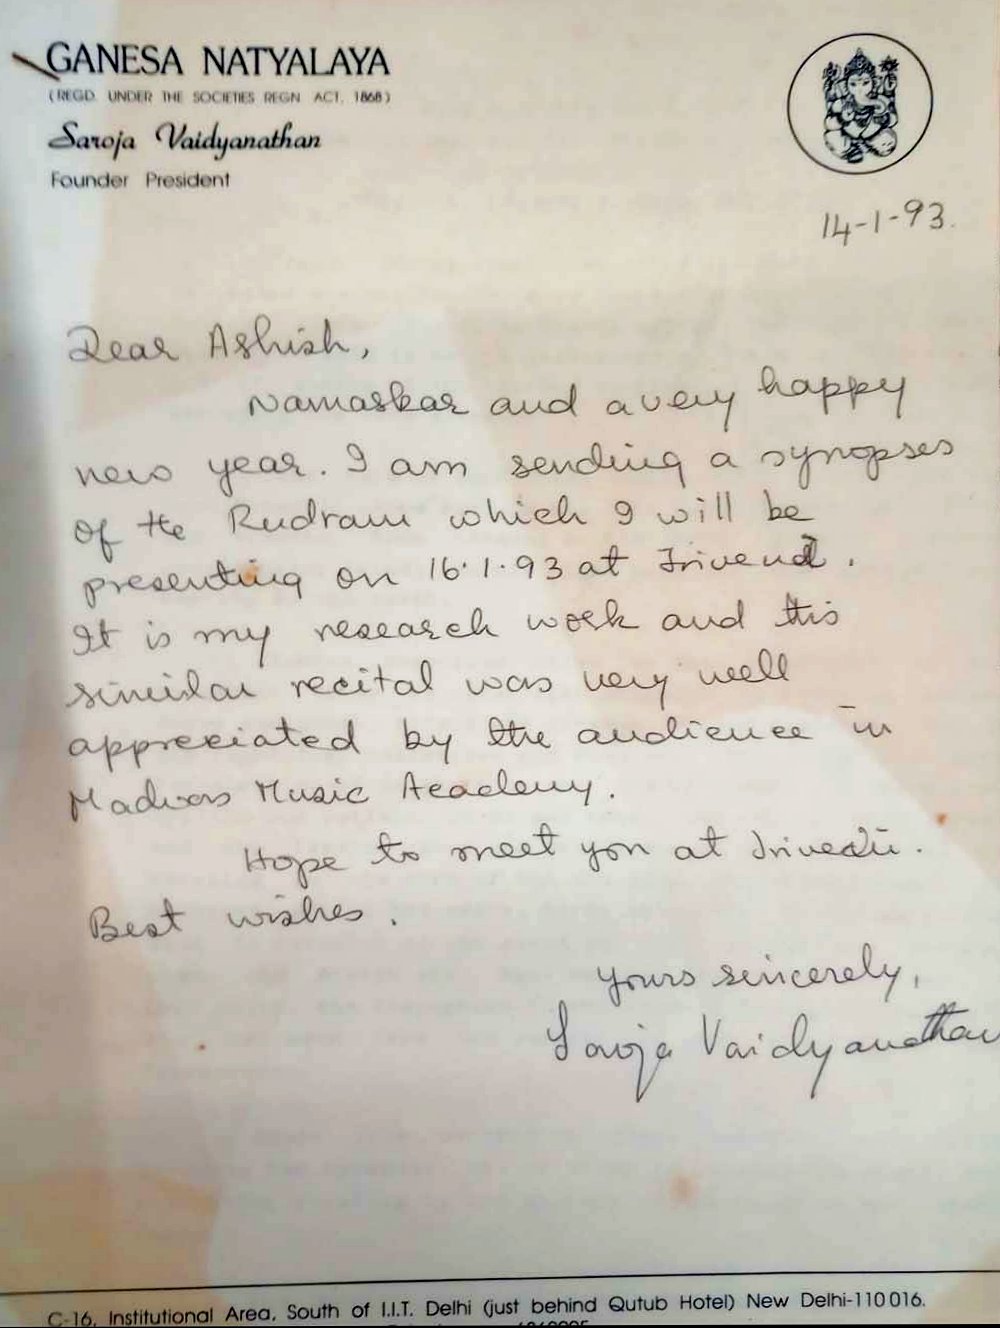 GANESA NATYALAYA
(REGD. UNDER THE SOCIETIES REGN. ACT. 1868)
Saroja Vaidyanathan
Founder President
14-1-93.
Dear Ashish,
Namaskar and a very happy
new year. I am sending a synopses
of the Rudram which I will be
presenting on 16.1.93 at Triveni.
It is my research work and this
similar recital was very well
appreciated by the audience in
Madras Music Academy.
Hope to meet you at Triveni.
Best wishes.
Yours sincerely,
Saroja Vaidyanathan
C-16, Institutional Area, South of I.I.T. Delhi (just behind Qutub Hotel) New Delhi-110016.